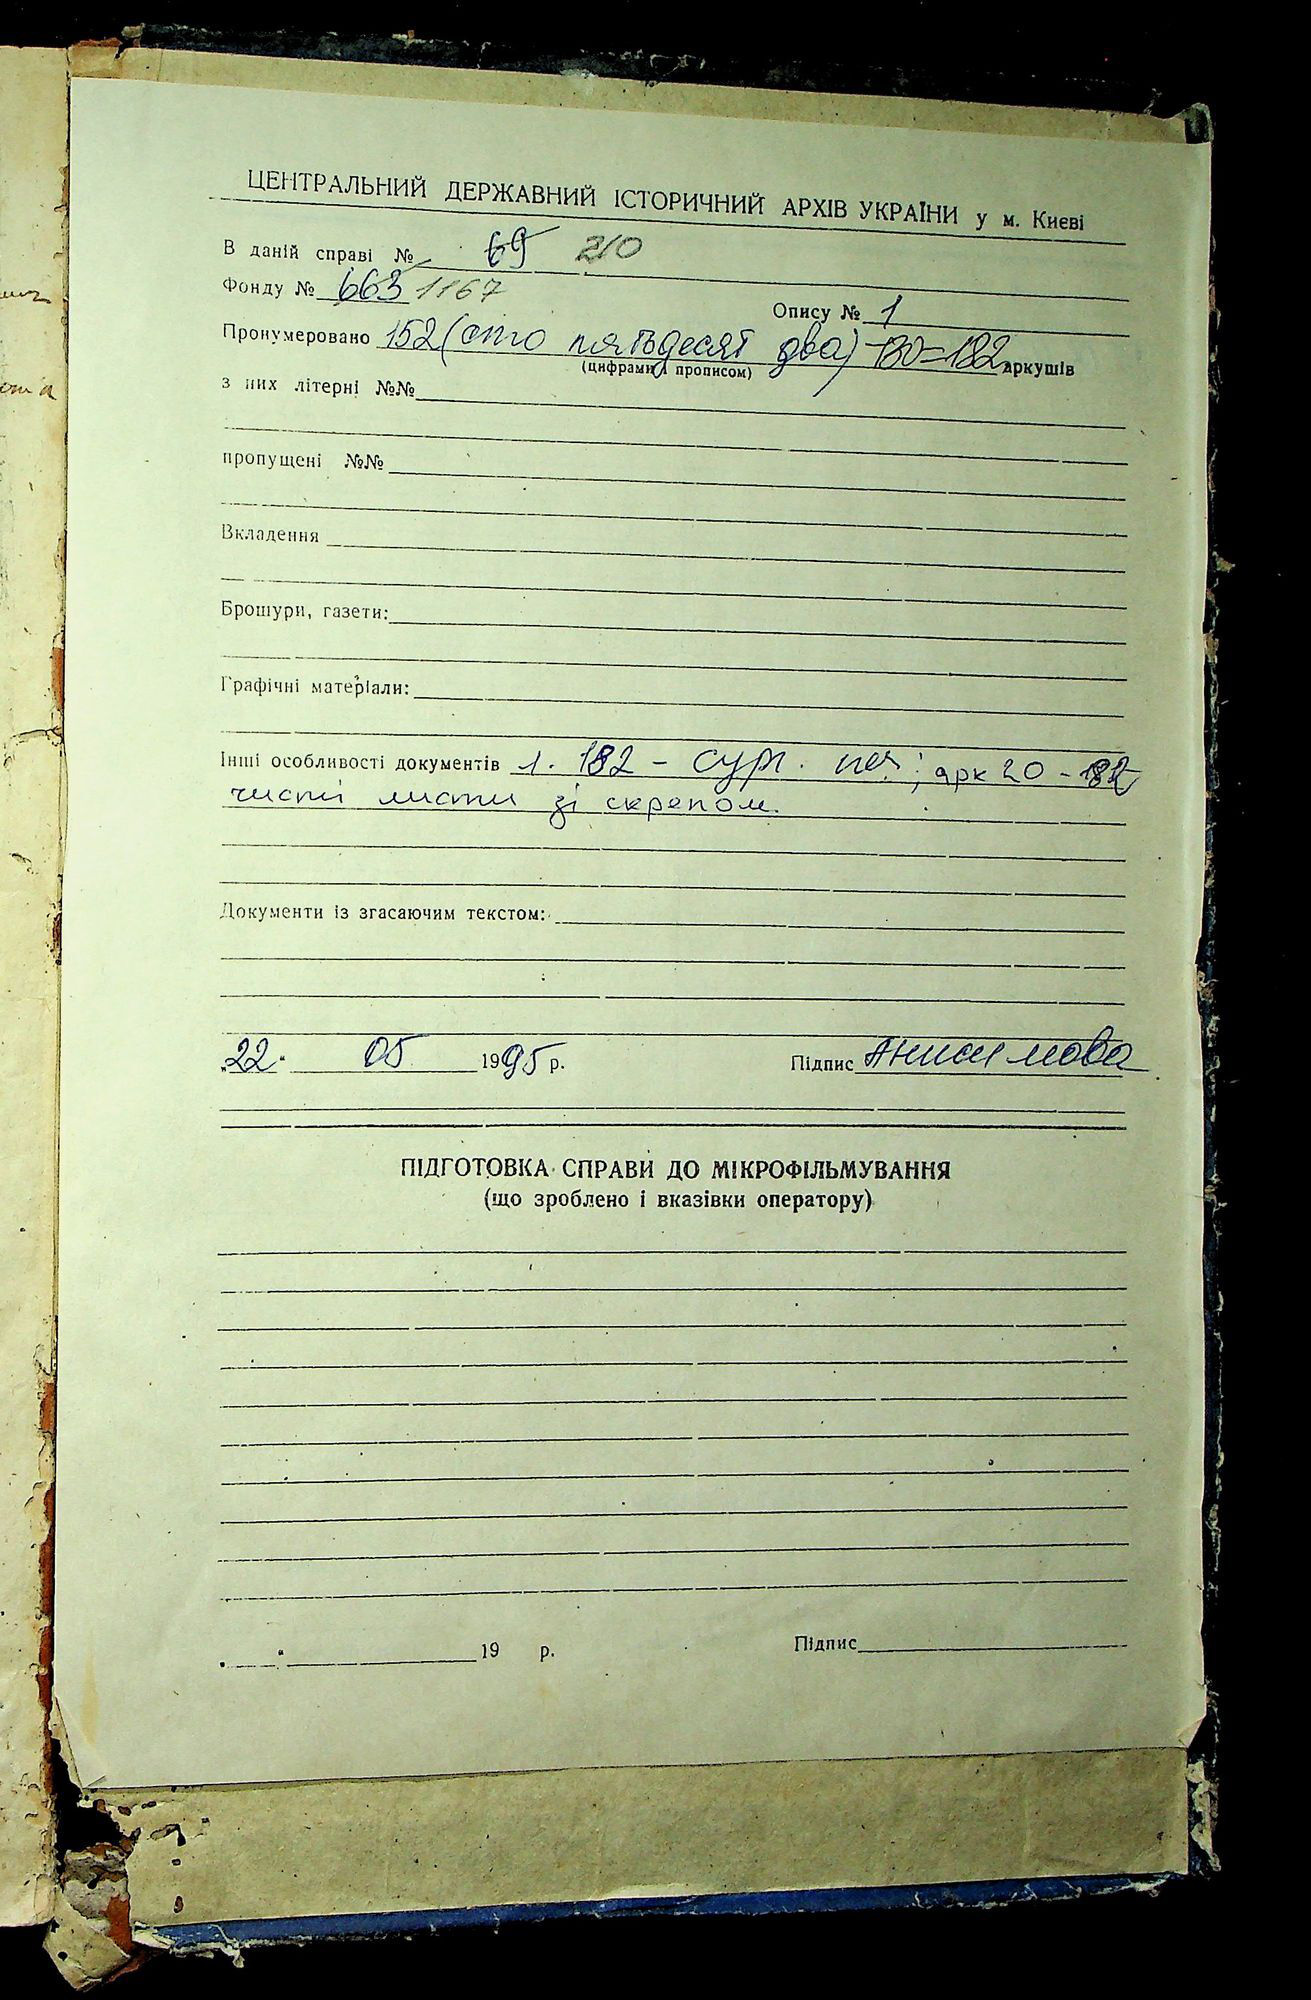 ЦЕНТРАЛЬНИЙ ДЕРЖАВНИЙ ІСТОРИЧНИЙ АРХІВ УКРАЇНИ у м. Києві
В даній справі № 69 210
Фонду № 663 1167
Опису № 1
Пронумеровано 152 (сто пятьдесят два) +30=182 аркушів
(цифрами і прописом)
з них літерні №№
пропущені №№
Вкладення
Брошури, газети:
Графічні матеріали:
Інші особливості документів 1. 182 - сург. печ.; арк 20 - 182
чисті листи зі скрепом.
Документи із згасаючим текстом:
„22" 05 1995 р. Підпис Анисимова
ПІДГОТОВКА СПРАВИ ДО МІКРОФІЛЬМУВАННЯ
(що зроблено і вказівки оператору)
" 19 р. Підпис